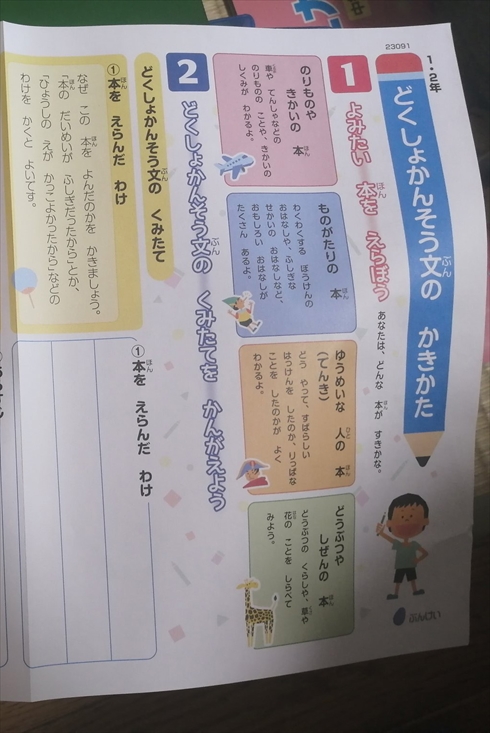 23091
1・2年
どくしょかんそう文の かきかた
ぶん
1 よみたい 本を えらぼう
ほん
あなたは、どんな 本が すきかな。
ほん
のりものや
きかいの 本
ほん
車や てんしゃなどの
のりものの ことや、きかいの
しくみが わかるよ。
ものがたりの 本
ほん
わくわくする ぼうけんの
おはなしや、ふしぎな
せかいの おはなしなど、
おもしろい おはなしが
たくさん あるよ。
ゆうめいな 人の 本
ひと ほん
(でんき)
どう やって、すばらしい
はっけんを したのか、りっぱな
ことを したのかが よく
わかるよ。
どうぶつや
しぜんの 本
ほん
どうぶつの くらしや、草や
花の ことを しらべて
みよう。
ぶんけい
2 どくしょかんそう文の くみたてを かんがえよう
ぶん
どくしょかんそう文の くみたて
ぶん
①本を えらんだ わけ
ほん
なぜ この 本を よんだのかを かきましょう。
ほん
「本の だいめいが ふしぎだったから」とか、
ほん
「ひょうしの えが かっこよかったから」などの
わけを かくと よいです。
①本を えらんだ わけ
ほん